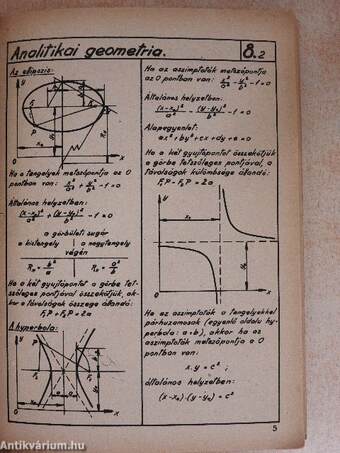 Analitikai geometria.
8.2
Az ellipszis:
Ha a tengelyek metszéspontja az O
pontban van: x²/a² + y²/b² - 1 = 0
Általános helyzetben:
(x-x₀)²/a² + (y-y₀)²/b² - 1 = 0
a görbületi sugár
a kistengely | a nagytengely
végén
Ha a két gyujtópontot a görbe tet-
szőleges pontjával összekötjük, ak-
kor a távolságok összege állandó:
F₁P + F₂P = 2a
A hyperbola:
Ha az asszimptoták metszéspontja
az O pontban van: x²/a² - y²/b² - 1 = 0
Általános helyzetben:
(x-x₀)²/a² - (y-y₀)²/b² - 1 = 0
Alapegyenlet:
ax² + by² + cx + dy + e = 0
Ha a két gyujtópontot összekötjük
a görbe tetszőleges pontjával, a
távolságok különbsége állandó:
F₁P - F₂P = 2a
Ha az asszimptoták a tengelyekkel
párhuzamosak (egyenlő oldalu hy-
perbola: a=b), akkor ha az
asszimptoták metszéspontja a O
pontban van:
x·y = c² ;
általános helyzetben:
(x-x₀)·(y-y₀) = c²
5
Antikvárium.hu